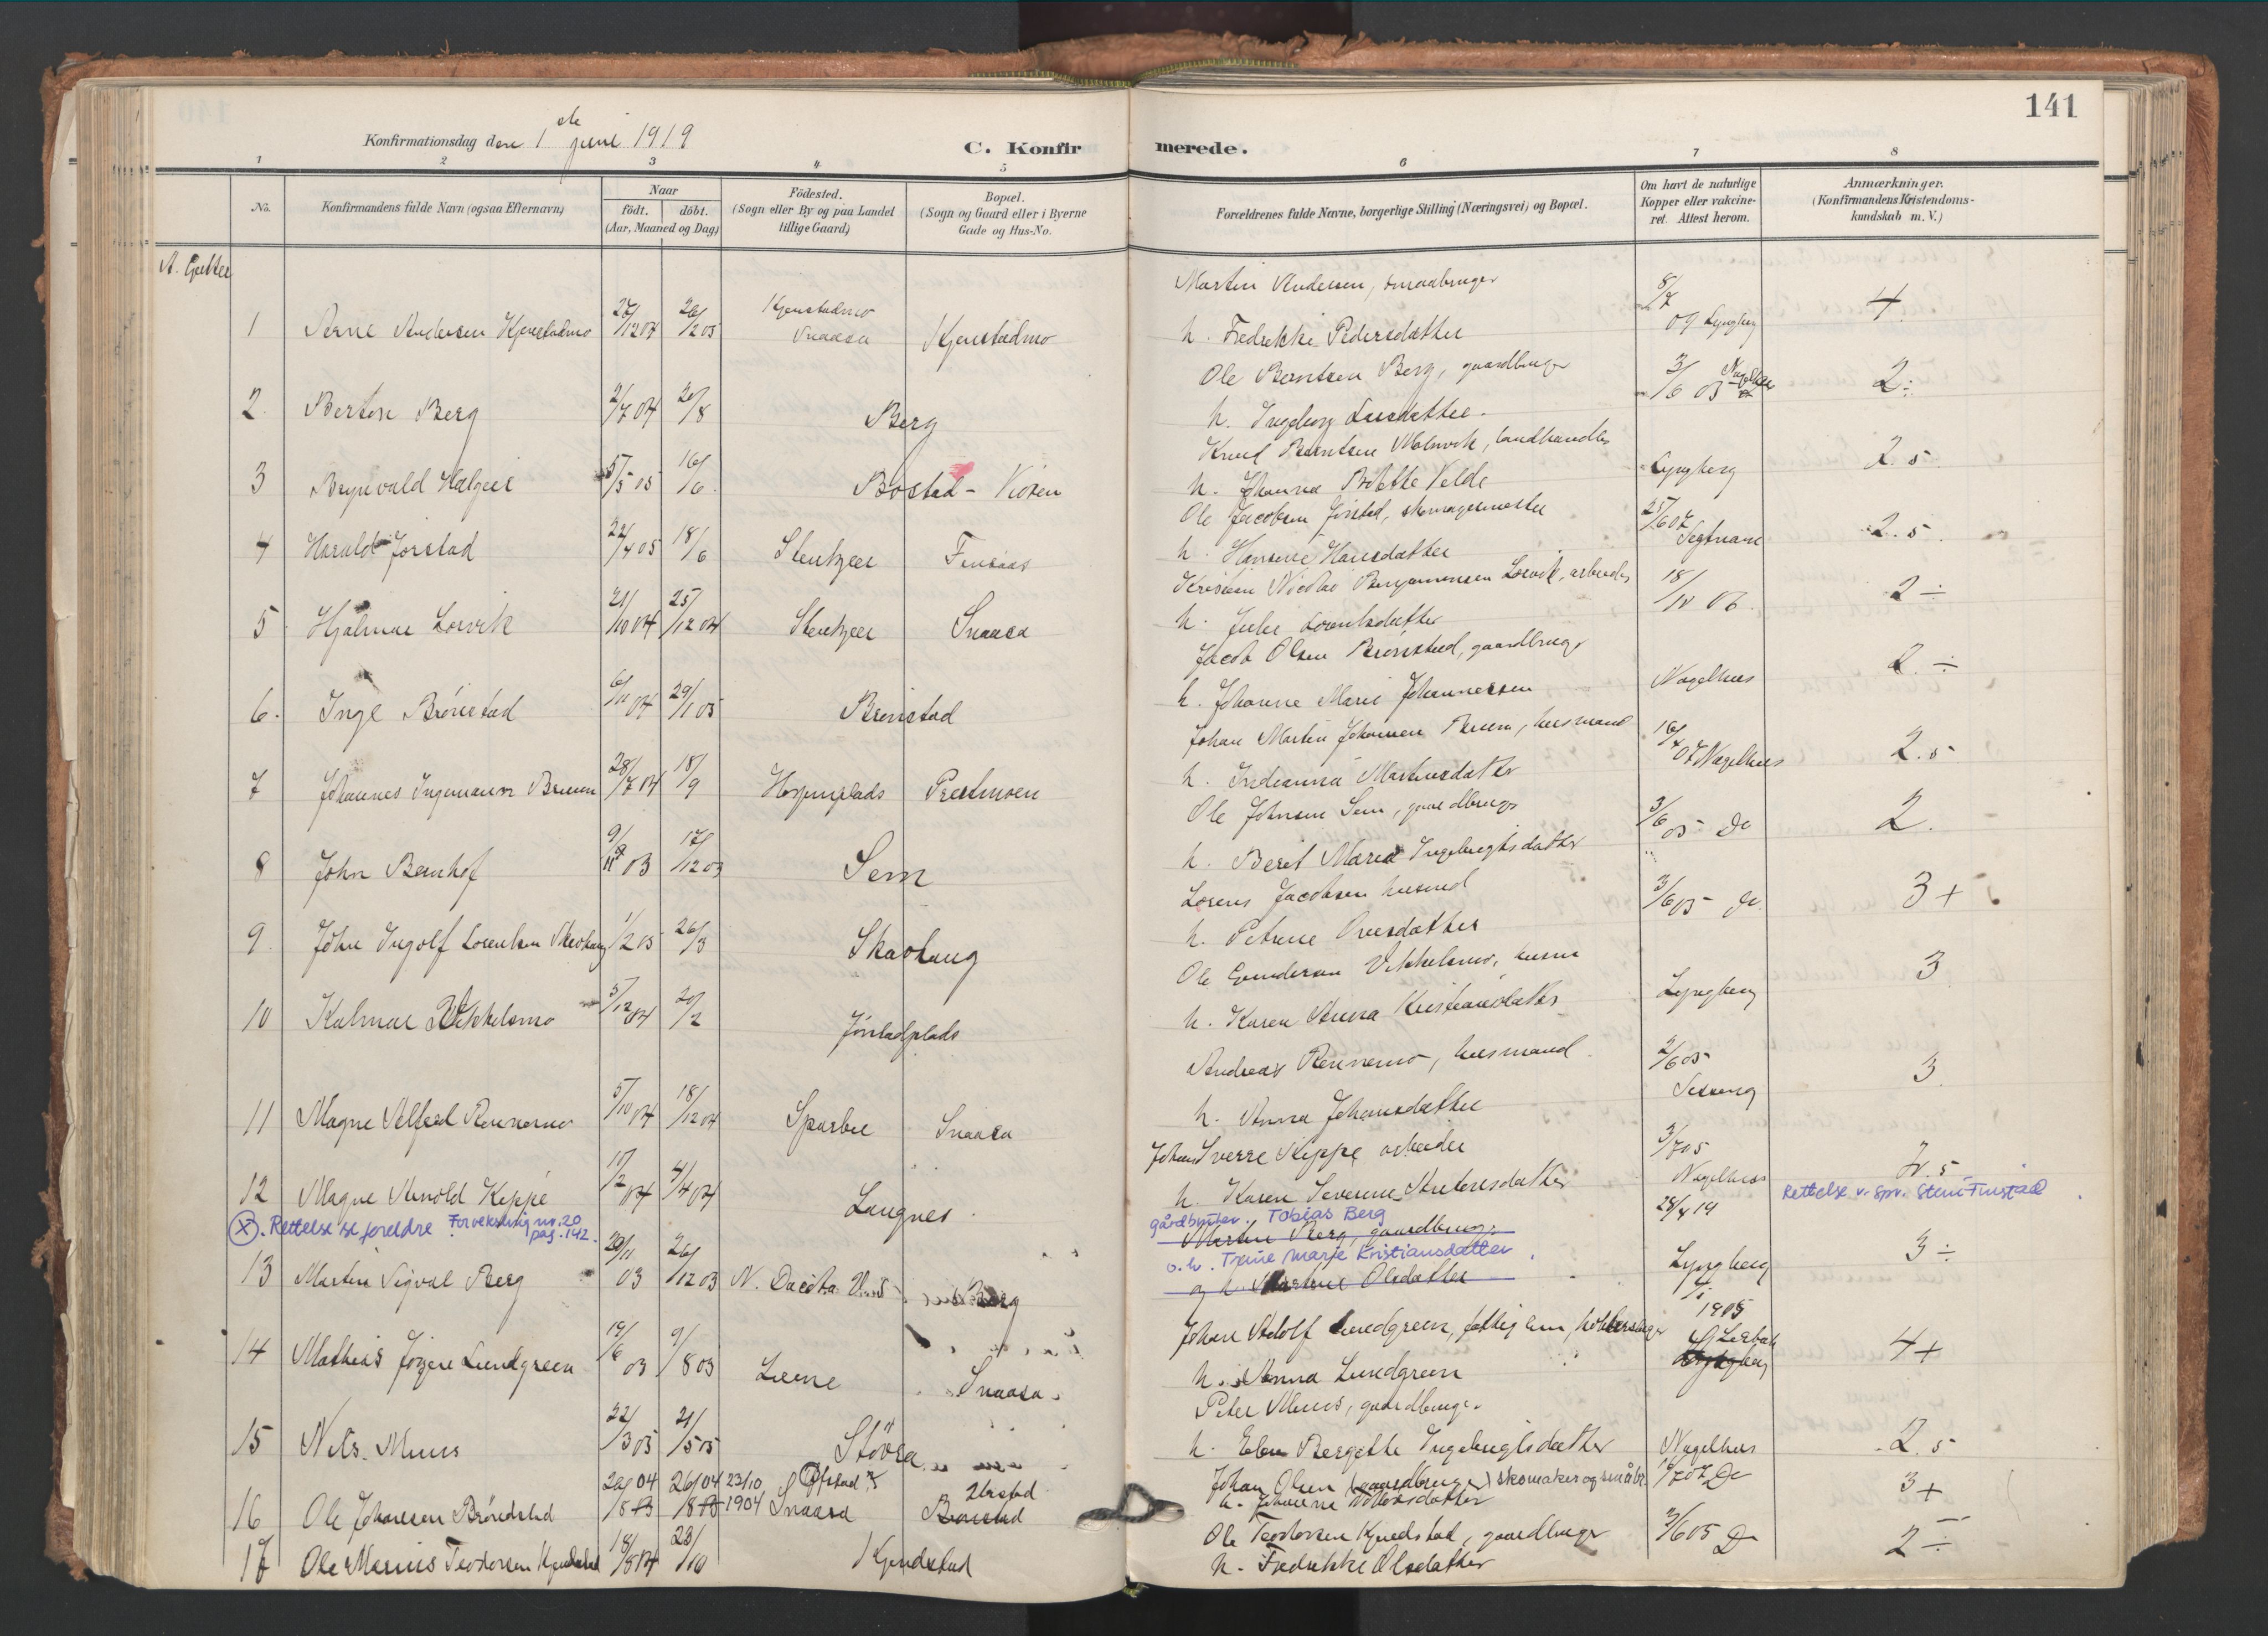 141
Konfirmationsdag den 1ste juni 1919
C. Konfirmerede.
1 2 3 4 5 6 7 8
No.
Konfirmandens fulde Navn (ogsaa Efternavn)
Naar
födt. döbt.
(Aar, Maaned og Dag)
Födested.
(Sogn eller By og paa Landet tillige Gaard)
Bopæl.
(Sogn og Gaard eller i Byerne Gade og Hus-No.
Forældrenes fulde Navne, borgerlige Stilling (Næringsvei) og Bopæl.
Om havt de naturlige Kopper eller vakcineret. Attest herom.
Anmærkninger.
(Konfirmandens Kristendomskundskab m. V.)
A. Gutter
1 Arne Andersen Kjenstadmo 27/12 04 26/2 05 Kjenstadmo Snaasa Kjenstadmo
Martin Andersen, smaabruger
h. Fredrikke Pedersdatter 8/7 09 Lyngberg 4
2. Bertose Berg 2/7 04 20/8 Berg
Ole Berntsen Berg, gaardbruger
h. Ingeborg Larsdatter. 3/6 05 2÷
3 Halgeir 5/5 05 16/6 Bostad - Viosen
Knud Berntsen Malmvik, landhandler
h. Johanna Velde Lyngberg 2.5
4 Harald Jörstad 22/4 05 18/6 Stenkjær Finsaas
Ole Jacobsen Jörstad, skomagermester
h. Hansine Hansdatter 25/6 07 2.5
5 Hjalmar Lorvik 21/10 04 25/12 04 Stenkjer Snaasa
Kristian Nicolai Benjaminsen Lorvik, arbeider
h. Julie Lorentsdatter 18/10 06. 2÷
6. Inge Brönstad 6/11 04 29/1 05 Brönstad
Jacob Olsen Brönstad, gaardbruger
h. Johanne Marie Johannessen Nagelhus 2.÷
7 Johannes Ingemann Bruem 28/7 04 18/9 Prestmoen
Johan Martin Johansen Bruem, husmand
h. Indianna Martinsdatter 16/4 07 Nagelhus 2.5
8 John Bernhof 9/11 03 17/12 03 Sem
Ole Johnsen Sem, gaardbruger
h. Berit Maria Ingebrigtsdatter 3/6 05 Do 2.
9. John Ingolf Lorentsen Skavhaug 1/2 05 26/3 Skavhaug
Lorens Jacobsen husmd
h. Petrine Ovesdatter 3/6 05 do. 3+
10 Kalmar Vekkelsmo 5/12 04 20/2 Jörstadplads
Ole Gundersen Vekkelsmo, husm
h. Karen Anna Kristiansdatter Lyngberg 3
11 Magne Alfred Rennemo 5/10 04 18/12 04 Sparbu Snaasa
Andreas Rennemo, husmand
h. Anna Johansdatter 2/6 05 3.
12 Magne Arnold Keppe 15/2 04 4/4 04 Langnes
Johan Sverre Keppe arbeider
h. Karen Severine Andersdatter 3/7 05 Nagelhus 2.5
(X). Rettelse se foreldre. Forveksling nr. 20 pag. 142.
Rettelse v. spr. Steini Finstad
gårdbruker. Tobias Berg
Martin Berg, gaardbruger
o. h. Trine Marie Kristiansdatter
og h. Martine Olsdatter
13 Martin Sigval Berg 20/11 03 26/12 03 N. Dacota Berg 28/4 19 Lyngberg 3÷
14 Mathias Jörgen Lundgreen 19/6 03 9/8 03 Leene Snaasa
Johan Adolf Lundgreen, fattig
h. Anna Lundgreen 1905 4+
15 Nils Muus 22/3 05 21/5 05 Stövra
Peter Muus, gaardbruger
h. Bergette Ingebrigtsdatter Nagelhus 2.5
16 Ole Johansen Bröndstad 20/8 04 26/18 04 23/10 1904 Snaasa Brönstad
Johan Olsen (gaardbruger) skomaker og småbr.
h. Johanne Nilsdatter Do 3+
17 Ole Marius Teodorsen Kjendstad 18/8 04 23/10 Kjendstad
Ole Teodorsen Kjendstad, gaardbruger
h. Fredrikke Olsdatter 3/6 05 Do 2÷